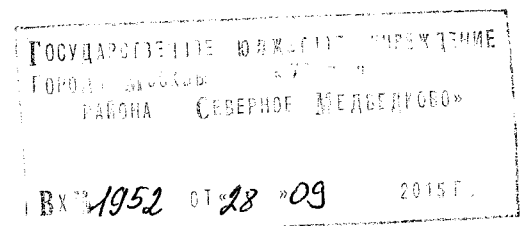 ГОСУДАРСТВЕННОЕ УЧРЕЖДЕНИЕ
ГОРОДА МОСКВЫ
РАЙОНА СЕВЕРНОЕ МЕДВЕДКОВО»
Вх № 1952 от «28 » 09 2015 г.